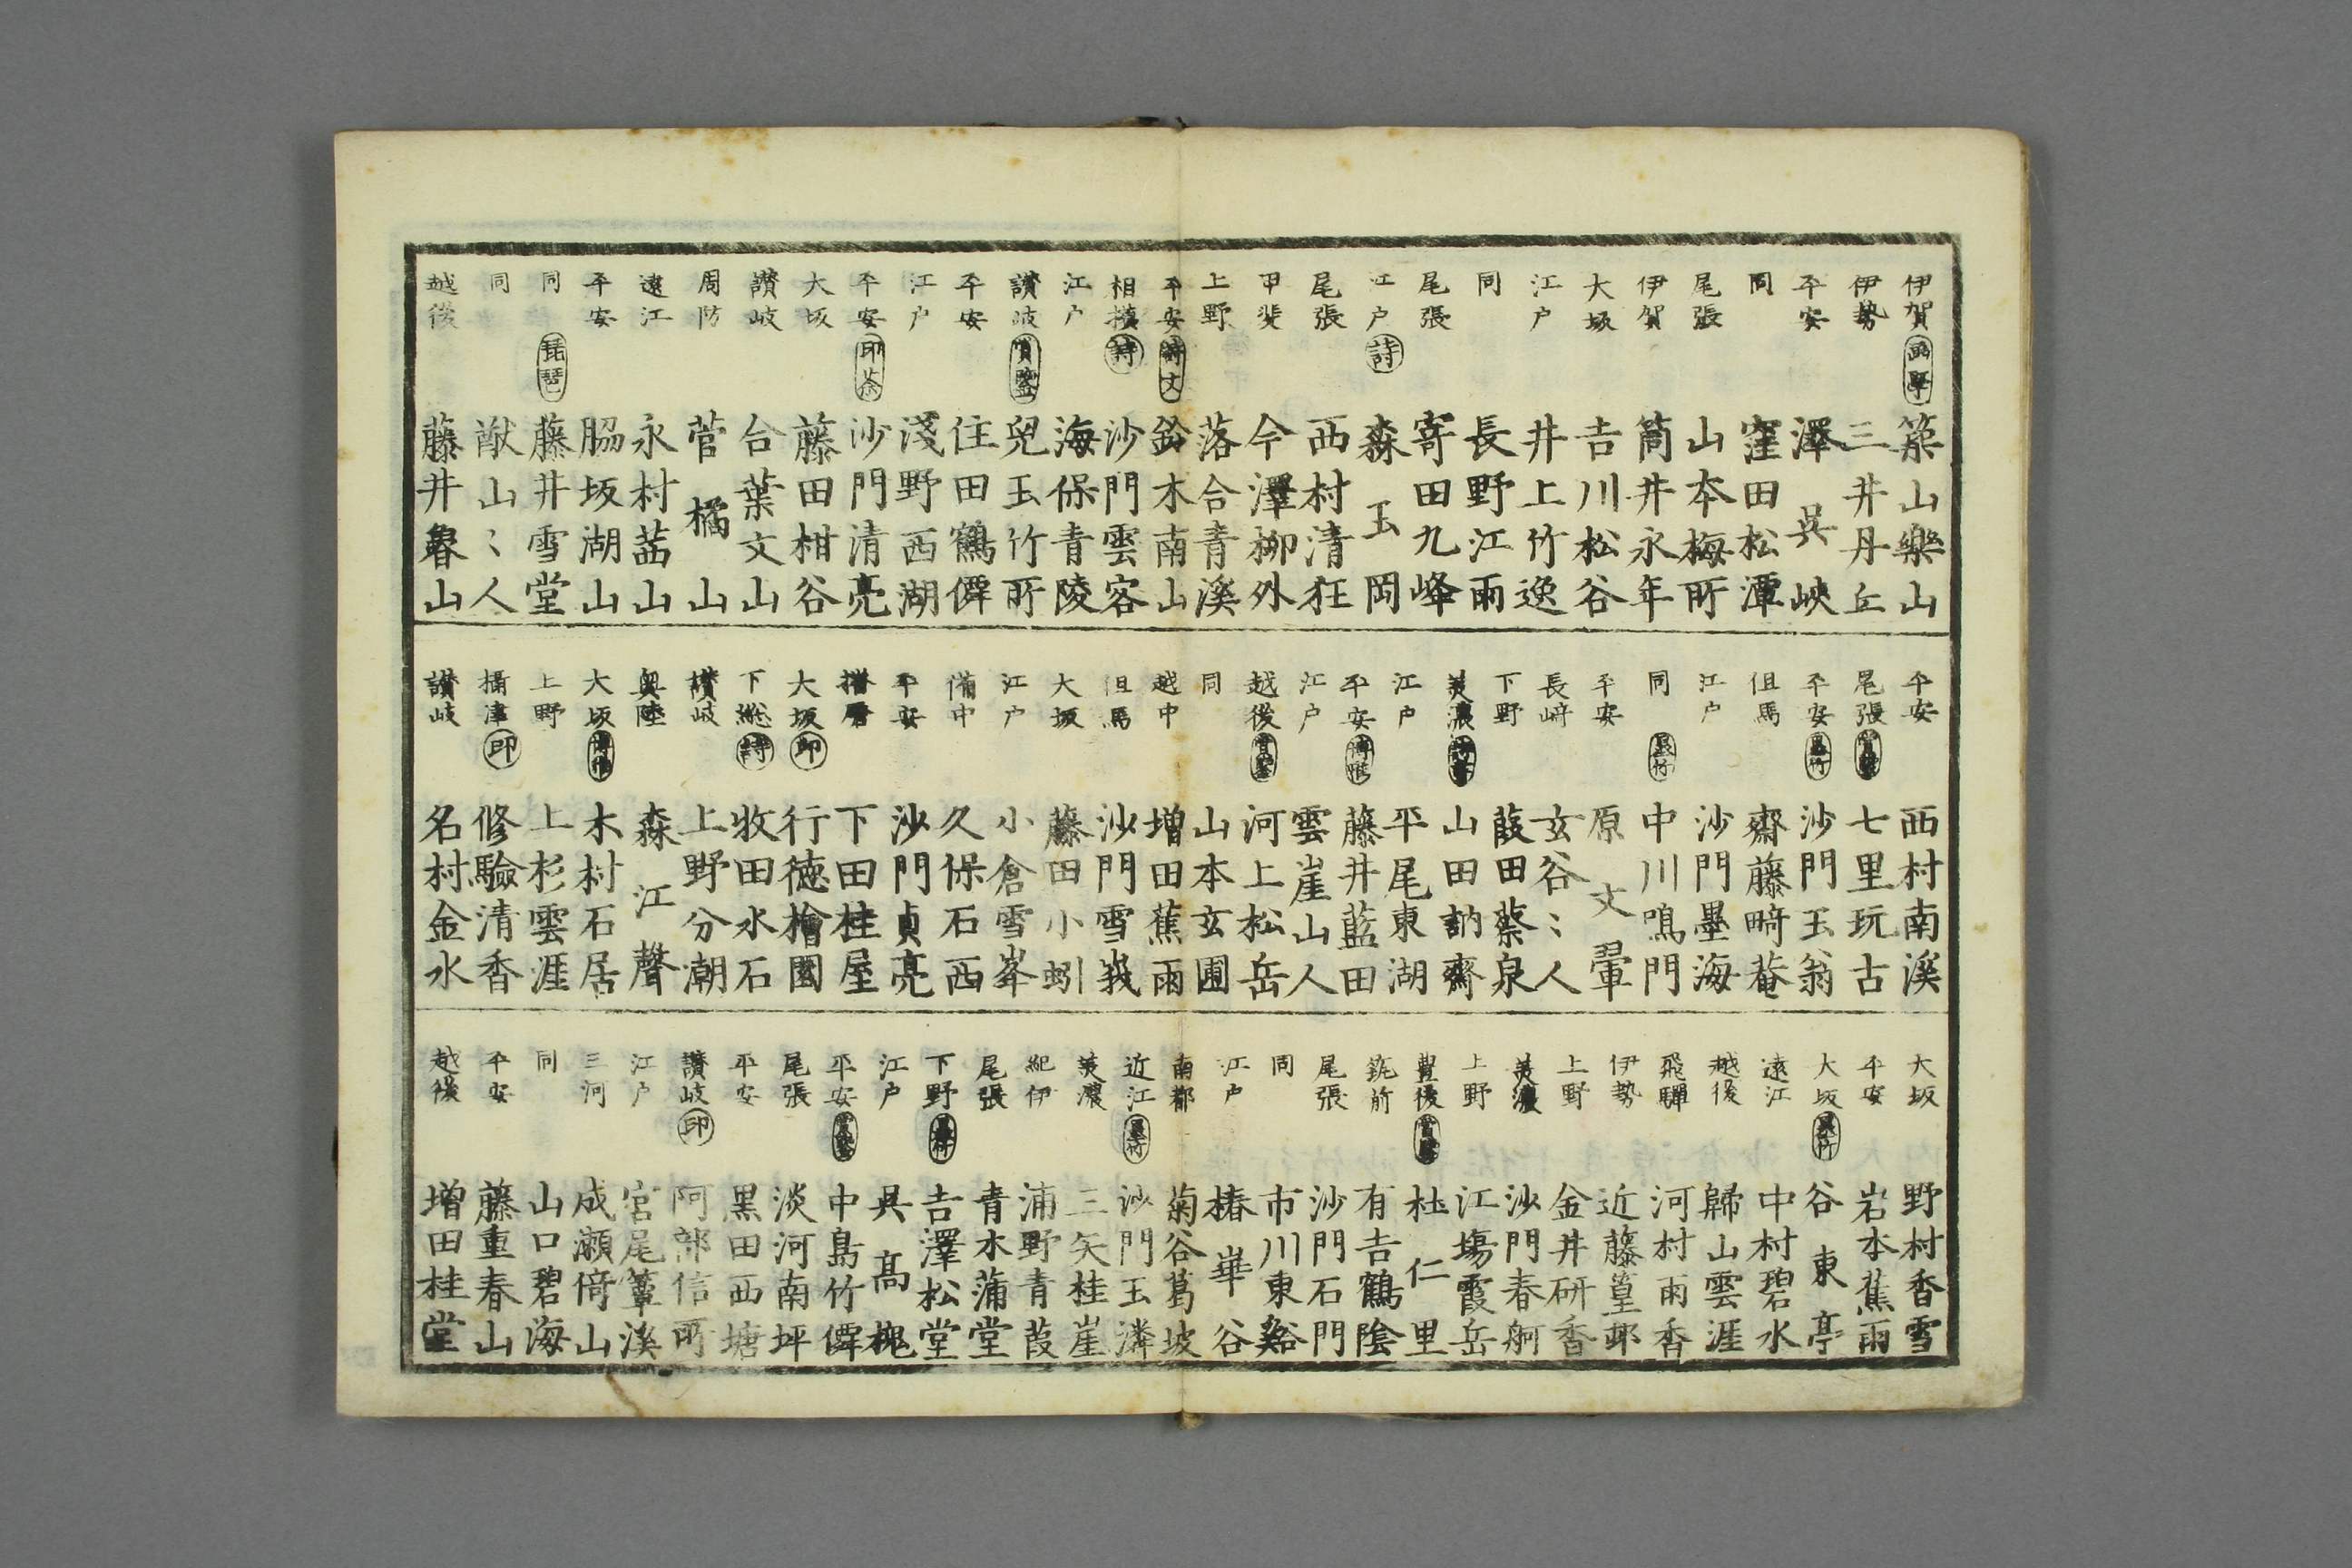 伊賀 画學 築山樂山
伊勢 三井丹丘
平安 澤吳峽
同 窪田松潭
尾張 山本梅所
伊賀 筒井永年
大坂 吉川松谷
江户 井上竹逸
同 長野江雨
尾張 寄田九峰
江户 詩 森玉岡
尾張 西村清狂
甲斐 今澤柳外
上野 落合青溪
平安 詩文 鈴木南山
相摸 詩 沙門雲容
江户 海保青陵
讃岐 賞鑒 兒玉竹所
平安 住田鶴僊
江户 淺野西湖
平安 印茶 沙門清亮
大坂 藤田柑谷
讃岐 合葉文山
周防 菅橘山
遠江 永村茁山
平安 脇坂湖山
同 琵琶 藤井雪堂
同 猷山〻人
越後 藤井魯山
平安 西村南溪
尾張 賞鑒 七里玩古
平安 墨竹 沙門玉翁
但馬 齋藤畸菴
江户 沙門墨海
同 墨竹 中川鳴門
平安 原文翬
長﨑 玄谷〻人
下野 葭田蔡泉
美濃 山田訥齋
江户 平尾東湖
平安 博雅 藤井藍田
江户 雲崖山人
越後 賞鑒 河上松岳
同 山本玄圃
越中 増田蕉雨
但馬 沙門雪峩
大坂 藤田小蚓
江户 小倉雪峯
備中 久保石西
平安 沙門貞亮
播磨 下田桂屋
大坂 印 行徳檜園
下総 詩 牧田水石
讃岐 上野分潮
奥陸 森江聲
大坂 木村石居
上野 上杉雲涯
攝津 印 修驗清香
讃岐 名村金水
大坂 野村香雪
平安 岩本蕉雨
大坂 墨竹 谷東亭
遠江 中村碧水
越後 歸山雲涯
飛驒 河村雨香
伊勢 近藤篁邨
上野 金井研香
美濃 沙門春舸
上野 江塲霞岳
豊後 賞鑒 杜仁里
筑前 有吉鶴陰
尾張 沙門石門
同 市川東谿
江户 椿崋谷
南都 菊谷葛坡
近江 墨竹 沙門玉潾
美濃 三矢桂崖
紀伊 浦野青葭
尾張 青木蒲堂
下野 墨竹 吉澤松堂
江户 吳髙槐
平安 賞鑒 中島竹僊
尾張 淡河南坪
平安 黒田西塘
讃岐 印 阿部信所
江户 宮尾簟溪
三河 成瀬倚山
同 山口碧海
平安 藤重春山
越後 増田桂堂